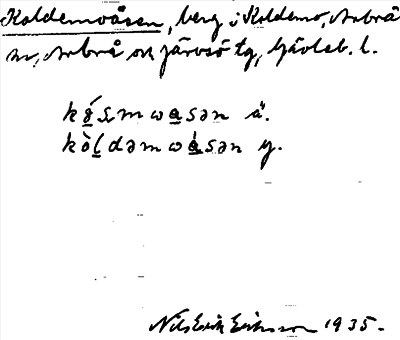 Koldemoåsen, berg i Koldemo, Arbrå
sn, Arbrå och Järvsö tg, Gävleb. l.
mwasən ä.
kòldəmwàsən y.
Nils Erik Eriksson 1935.